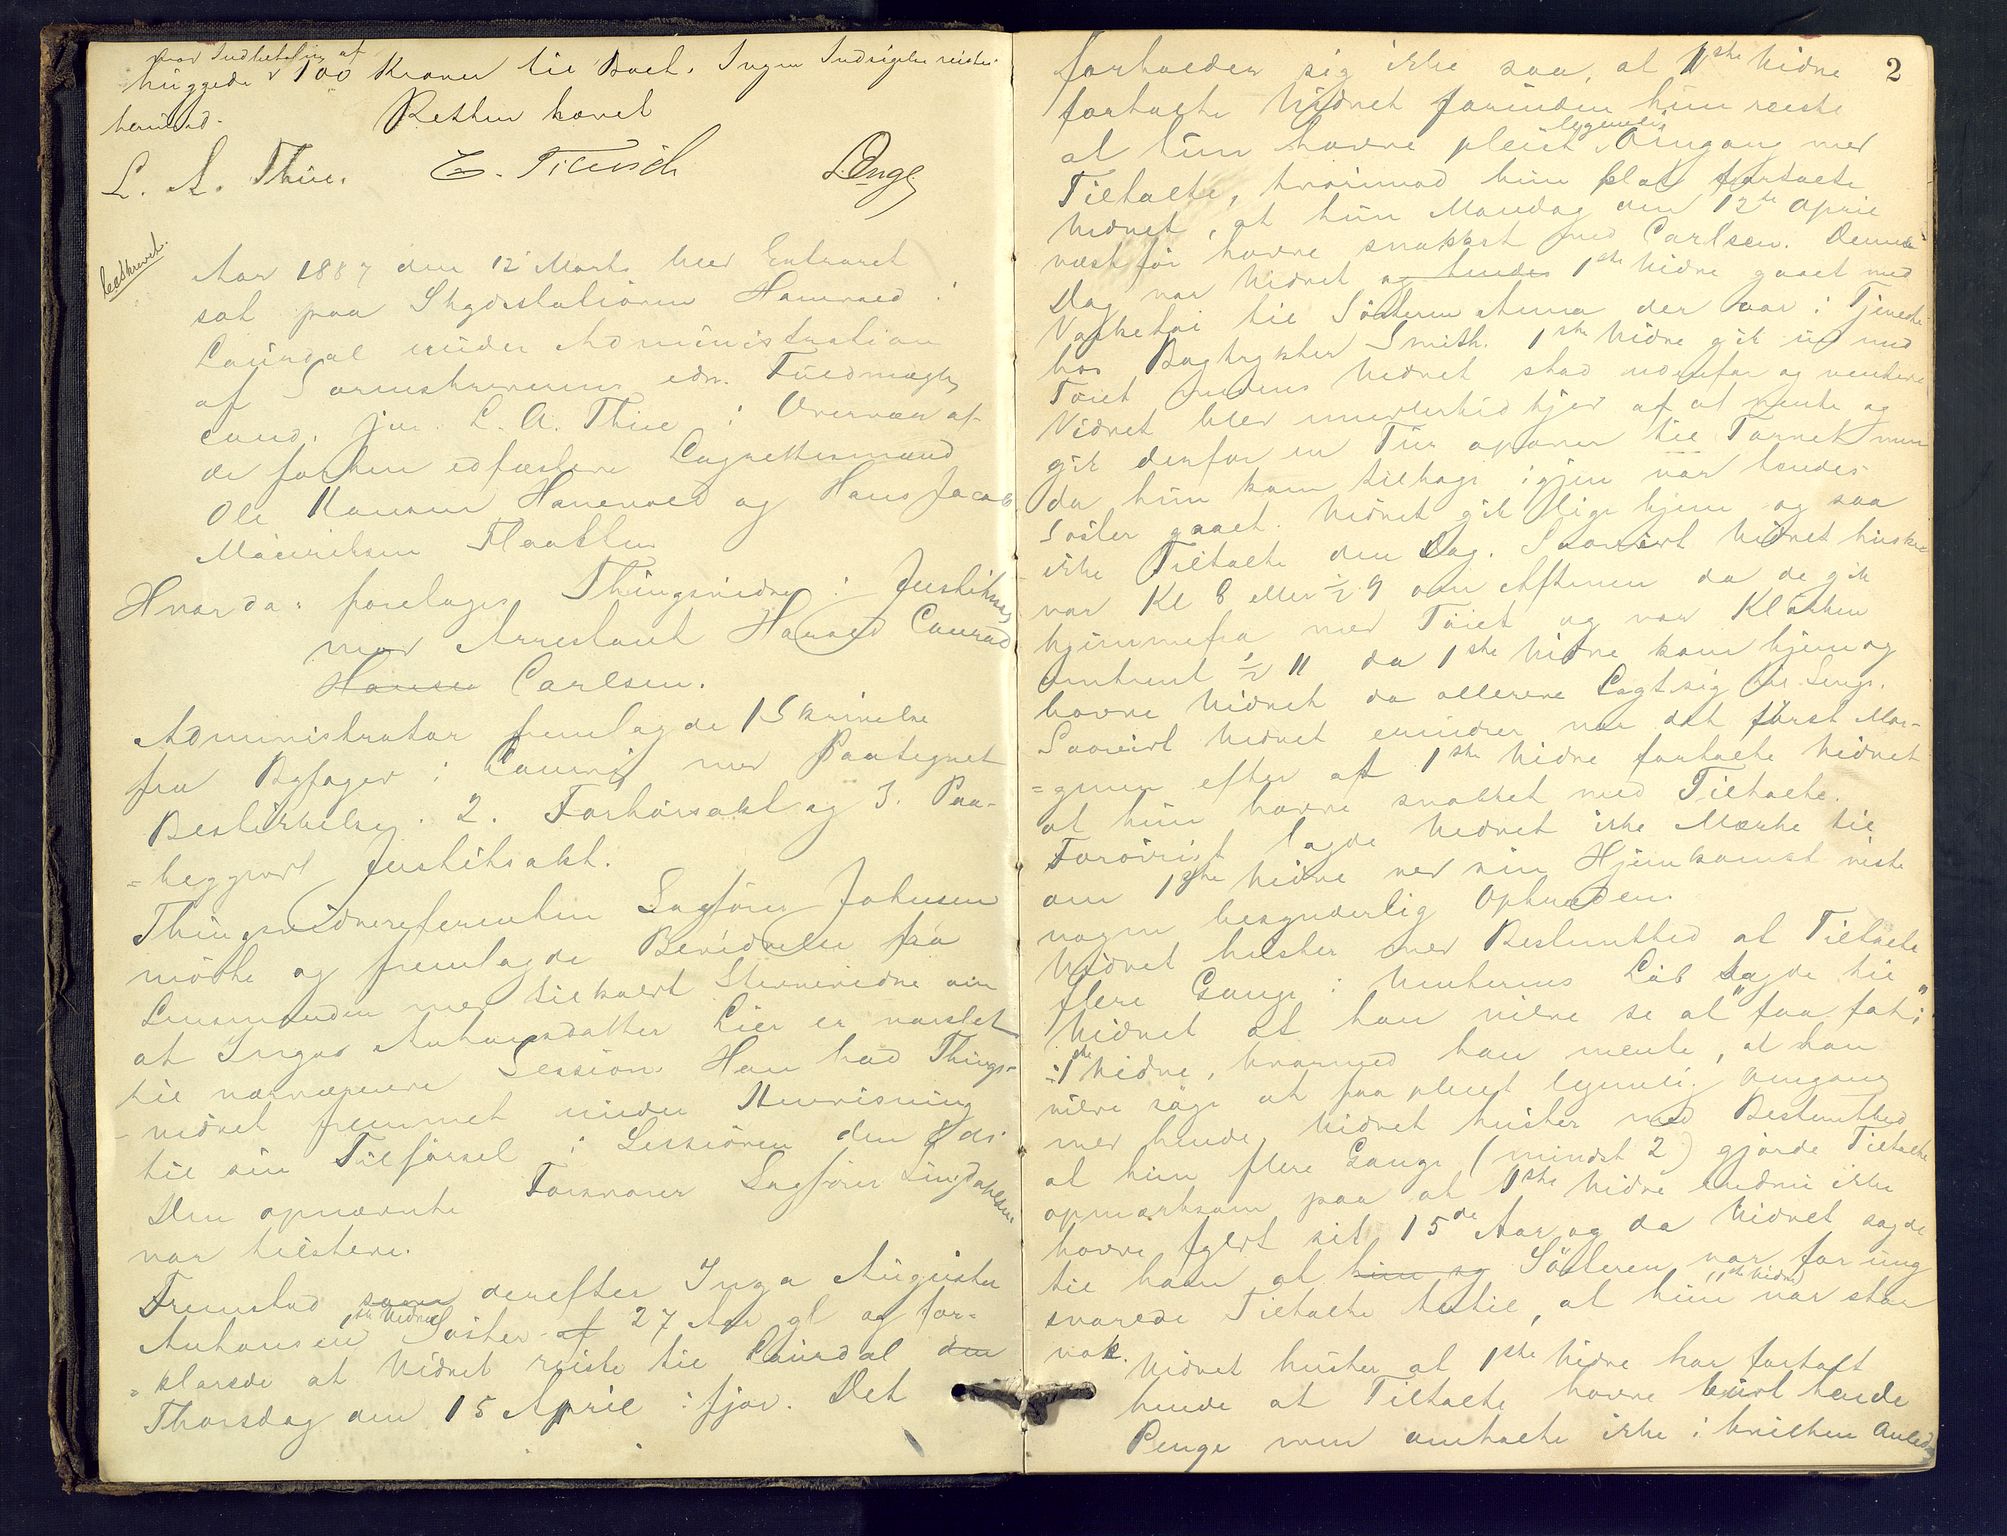 mod Indbetaling af
huggede 100 Kroner til Boet. Ingen Indsigelse reistes
herimod.
Retten hævet
L. A. Thue. E. Tidusch Lange
beskrevet.
Aar 1887 den 12 Marts blev Extraret
sat paa Skydsstationen Hanevold i
Laurdal under Administration
af Sorenskriverens edsv. Fuldmægtig
cand. jur. L. A. Thue i Overvær af
de forhen edfæstede Lagrettesmænd
Ole Hansen Hanevold og Hans Jacob
Mauritsen Flaatten
Hvorda: foretoges Thingsvidne i Justitssag
mod Arrestant Harald Conrad
Hansen Carlsen.
Administrator fremlagde 1 Skrivelse
fra Byfoged i Laurvig med Paategnet
Beslikkelse. 2. Forhørsakt og 3. Paa-
=begyndt Justitsakt.
Thingsvidnereferenten Sagfører Johnsen
mødte og fremlagde Bevidnelse fra
Lensmanden med tilkaldt Stevnevidne om
at Inga Antonsdatter Lier er varslet
til nærværende Session. Han bad Things-
-vidnet fremmet under Henvisning
til sin Tilførsel i Sessionen den 8ds.
Den opnævnte Forsvarer Sagfører Lingdahlsen
var tilstede.
Fremstod som derefter Inga Augusta
Antonsen 1ste Vidnes Søster af 27 Aar gl og for-
=klarede at Vidnet reiste til Laurdal den
Thorsdag den 15 April ifjor. Det
2
forholder sig ikke saa, at 1ste Vidne
fortalte Vidnet forinden hun reiste
at hun havde pleiet legemlig Omgang med
Tiltalte, hvorimod hun blot fortalte
Vidnet, at hun Mandag den 12te April
næstfør havde snakket med Carlsen. Denne
Dag var Vidnet og hendes 1ste Vidne gaaet med
Vasketøi til Søsteren Anna der var i Tjeneste
hos Bogtrykker Smith. 1ste Vidne gik ind med
Tøiet medens Vidnet stod udenfor og ventede
Vidnet blev imidlertid kjed af at vente og
gik derfor en Tur opover til Torvet men
da hun kom tilbage igjen var hendes
Søster gaaet. Vidnet gik lige hjem og saa
ikke Tiltalte den Dag. Saavidt Vidnet husker
var Kl 8 eller ½ 9 om Aftenen da de gik
hjemmefra med Tøiet og var Klokken
omtrent ½ 11 da 1ste Vidne kom hjem og
havde Vidnet da allerede Lagt sig til Sengs.
Saavidt Vidnet erindrer var det først Mor-
=genen efter at 1ste Vidne fortalte Vidnet
at hun havde snakket med Tiltalte.
Forøvrigt lagde Vidnet ikke Mærke til
om 1ste Vidne ved sin Hjemkomst viste
nogen besynderlig Optræden.
Vidnet husker med Bestemthed at Tiltalte
flere Gange i Vinterens Løb sagde til
Vidnet at han vilde se at "faa fat i"
1ste Vidne, hvormed han mente, at han
vilde søge at faa pleiet legemlig Omgang
med hende. Vidnet husker med Bestemthed
at hun flere Gange (mindst 2) gjorde Tiltalte
opmærksom paa at 1ste Vidne endnu ikke
havde fyldt sit 15de Aar og da Vidnet sagde
til ham at hun og Søsteren var for ung
svarede Tiltalte hertil, at hun 1ste Vidne var stor
nok.
Vidnet husker at 1ste Vidne har fortalt
hende at Tiltalte havde budt hende
Penge men omtalte ikke i hvilken Anledn